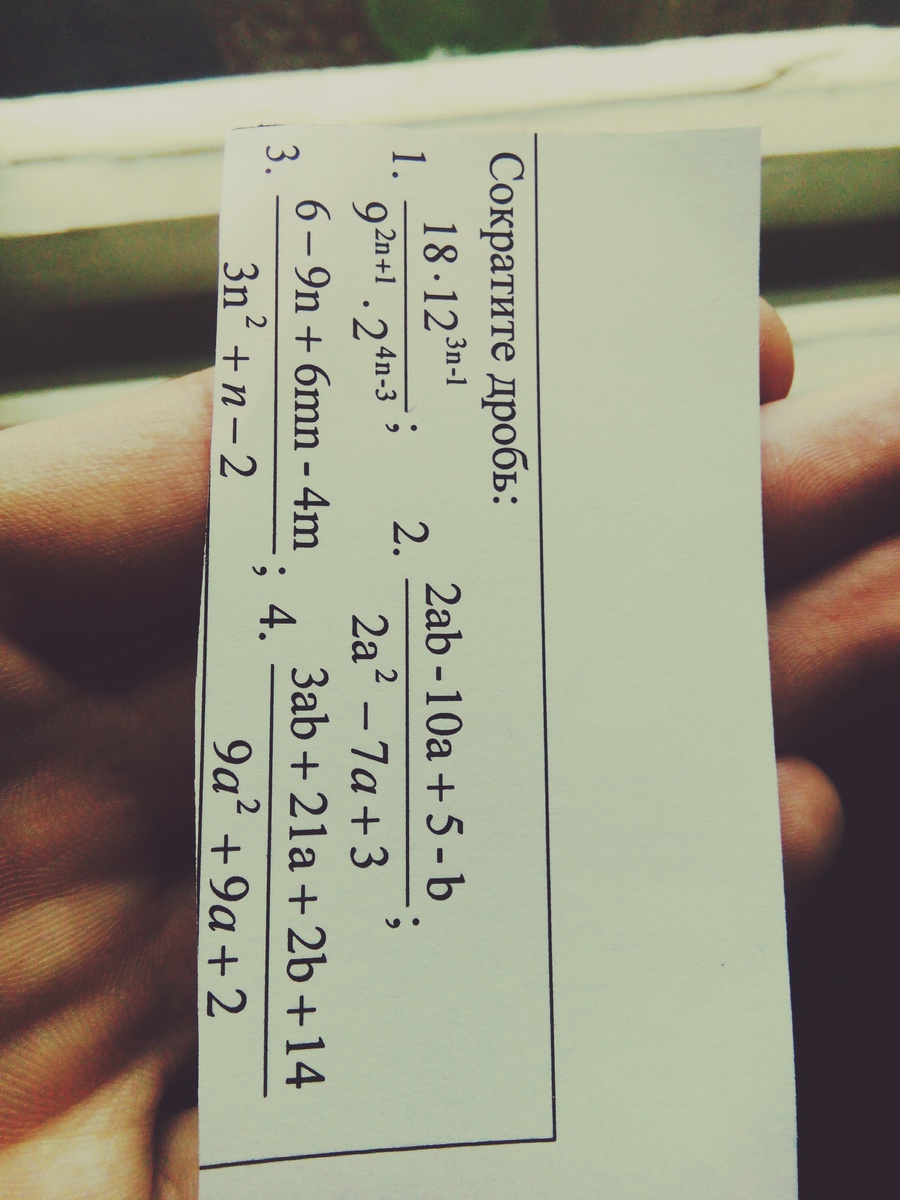 Сократите дробь:
1. \frac{18 \cdot 12^{3n-1}}{9^{2n+1} \cdot 2^{4n-3}}; 2. \frac{2ab - 10a + 5 - b}{2a^2 - 7a + 3};
3. \frac{6 - 9n + 6mn - 4m}{3n^2 + n - 2}; 4. \frac{3ab + 21a + 2b + 14}{9a^2 + 9a + 2}